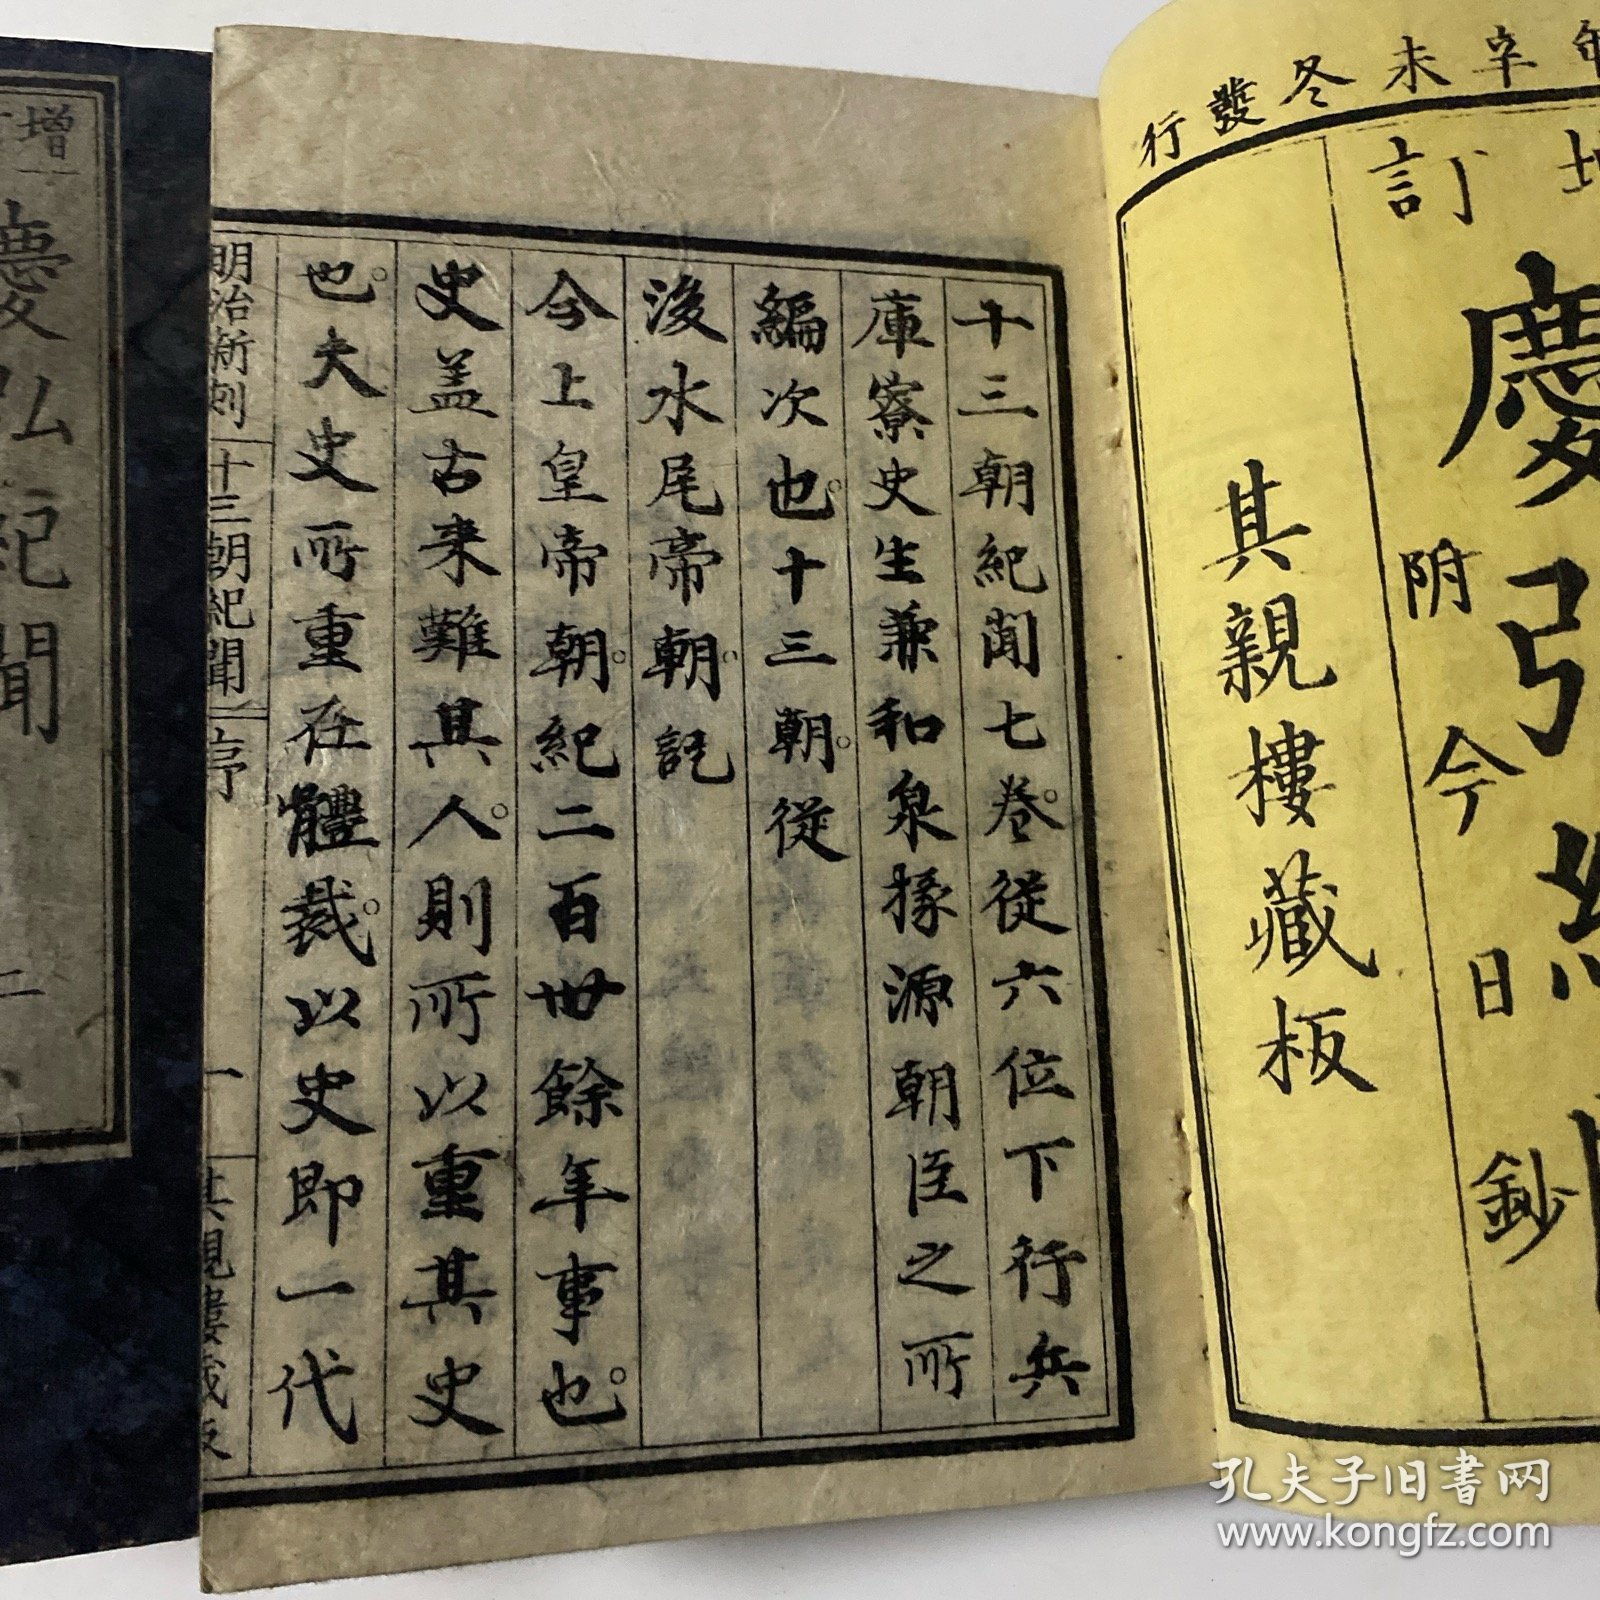 辛未冬發行
訂
慶弘紀
阴今日鈔
其親樓藏板
十三朝紀聞七卷。從六位下行兵
庫寮史生兼和泉掾源朝臣之所
編次也。十三朝。從
後水尾帝朝。訖
今上皇帝朝。紀二百卌餘年事也。
史盖古来難其人。則所以重其史
也。夫史所重在體裁。以史即一代
明治新刻 十三朝紀聞 序 一 其親樓藏板
增
慶弘紀聞 二
孔夫子旧书网
www.kongfz.com